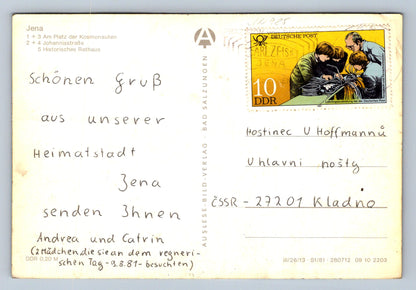 Jena
1 + 3 Am Platz der Kosmonauten
2 + 4 Johannisstraße
5 Historisches Rathaus
Schönen Gruß
aus unserer
Heimatstadt
Jena
senden Ihnen
Andrea und Catrin
(2 Mädchen, die sie an dem regneri-
schen Tag -9.3.81- besuchten)
EVP
DDR 0,20 M
AUSLESE-BILD-VERLAG BAD SALZUNGEN
DEUTSCHE POST
10
DDR
JENA
Hostinec U Hoffmannů
U hlavni pošty
ČSSR - 27201 Kladno
III/26/13 01 81 280712 09 10 2203